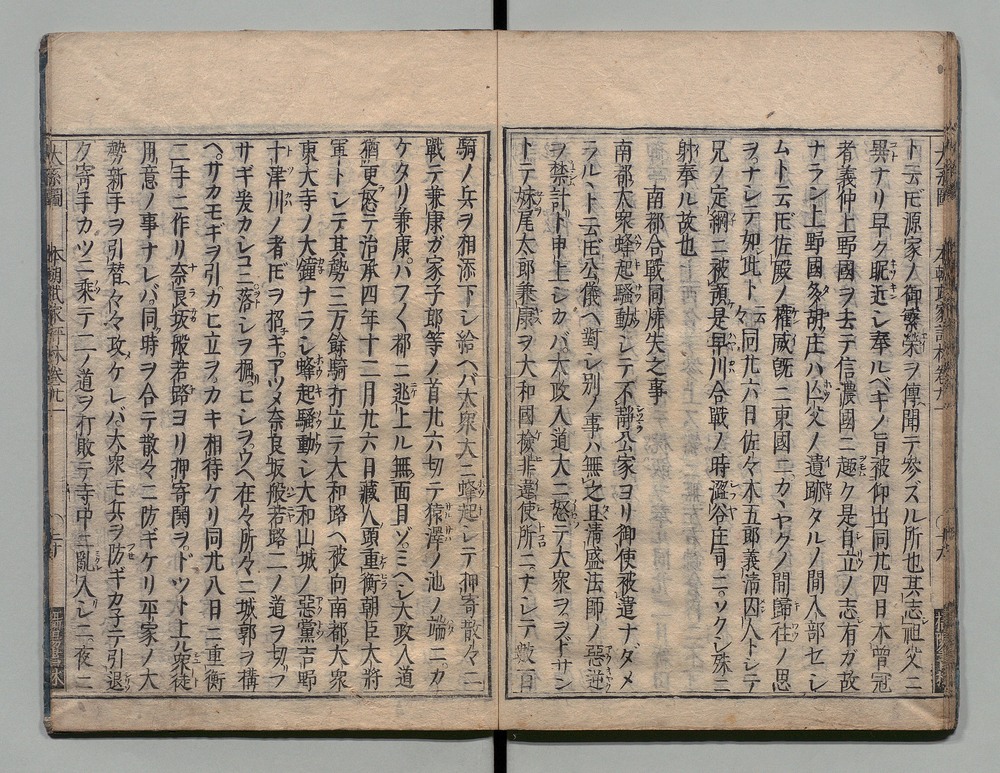 ト云𪜈源家ノ御繁榮ヲ傳聞テ參ズル所也其志祖父ニ
異ナリ早ク昵近シ奉ルベキノ旨被仰出同廿四日木曾冠
者義仲上野國ヲ去テ信濃國ニ趣ク是自立ノ志有ガ故
ナラン上野國多胡庄ハ亡父ノ遺跡タルノ間入部セシ
ムト云𪜈佐殿ノ權威既ニ東國ニカヽヤクノ間歸往ノ思
ヲナシテ如此ト云々同廿六日佐々木五郎義清囚人トシテ
兄ノ定綱ニ被預是早川合戰ノ時澁谷庄司ニソクシ殊ニ
射奉ル故也
南都合戰同廃失之事
南都大衆蜂起騒動シテ不靜公家ヨリ御使被遣ナダメ
ラルヽト云𪜈公儀ヘ對シ別ノ事ハ無之且清盛法師ノ惡逆
ヲ禁計ト申上シカバ大政入道大ニ怒テ大衆ヲヲドサン
トテ妹尾太郎兼康ヲ大和國檢非違使所ニナシテ數百
騎ノ兵ヲ相添下シ給ヘバ大衆大ニ蜂起シテ押寄散々ニ
戰テ兼康ガ家子郎等ノ首廿六切テ猿澤ノ池ノ端ニカ
ケタリ兼康ハフ〱都ニ逃上ル無面目ゾミヘシ大政入道
猶更怒テ治承四年十二月廿六日藏人頭重衡朝臣大將
軍トシテ其勢三万餘騎打立テ大和路ヘ被向南都大衆
東大寺ノ大鐘ナラシ蜂起騒動シ大和山城ノ惡黨吉野
十津川ノ者𪜈ヲ招ギアツメ奈良坂般若路二ノ道ヲ切フ
サギ爰カシコニ落シヲ掘ヒシヲウヘ在々所々ニ城郭ヲ構
ヘサカモギヲ引カヒ立ヲカキ相待ケリ同廿八日ニ重衡
二手ニ作リ奈良坂般若路ヨリ押寄関ヲドツト上ル衆徒
用意ノ事ナレバ同時ヲ合テ散々ニ防ギケリ平家ノ大
勢新手ヲ引替々々攻メケレバ大衆モ兵ヲ防ギカ子テ引退
ク寄手カツニ乘テ二ノ道ヲ打敗テ寺中ニ亂入シニ夜ニ
本朝武家評林卷廿一